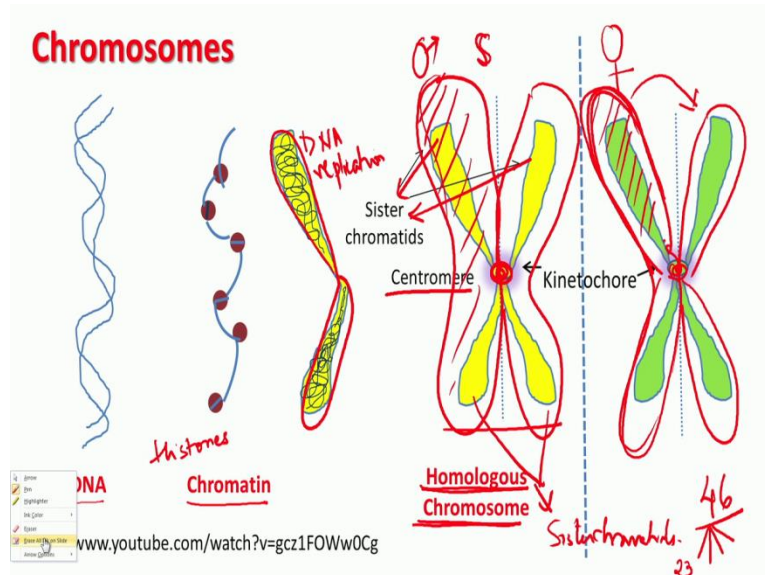 Chromosomes
♂ S ♀
DNA
replication
Sister
chromatids
Centromere
Kinetochore
Histones
DNA
Chromatin
Homologous
Chromosome
Sisterchromatids.
46
23
Arrow
Pen
Highlighter
Ink Color
Eraser
Erase All Ink on Slide
Arrow Options
www.youtube.com/watch?v=gcz1FOWw0Cg